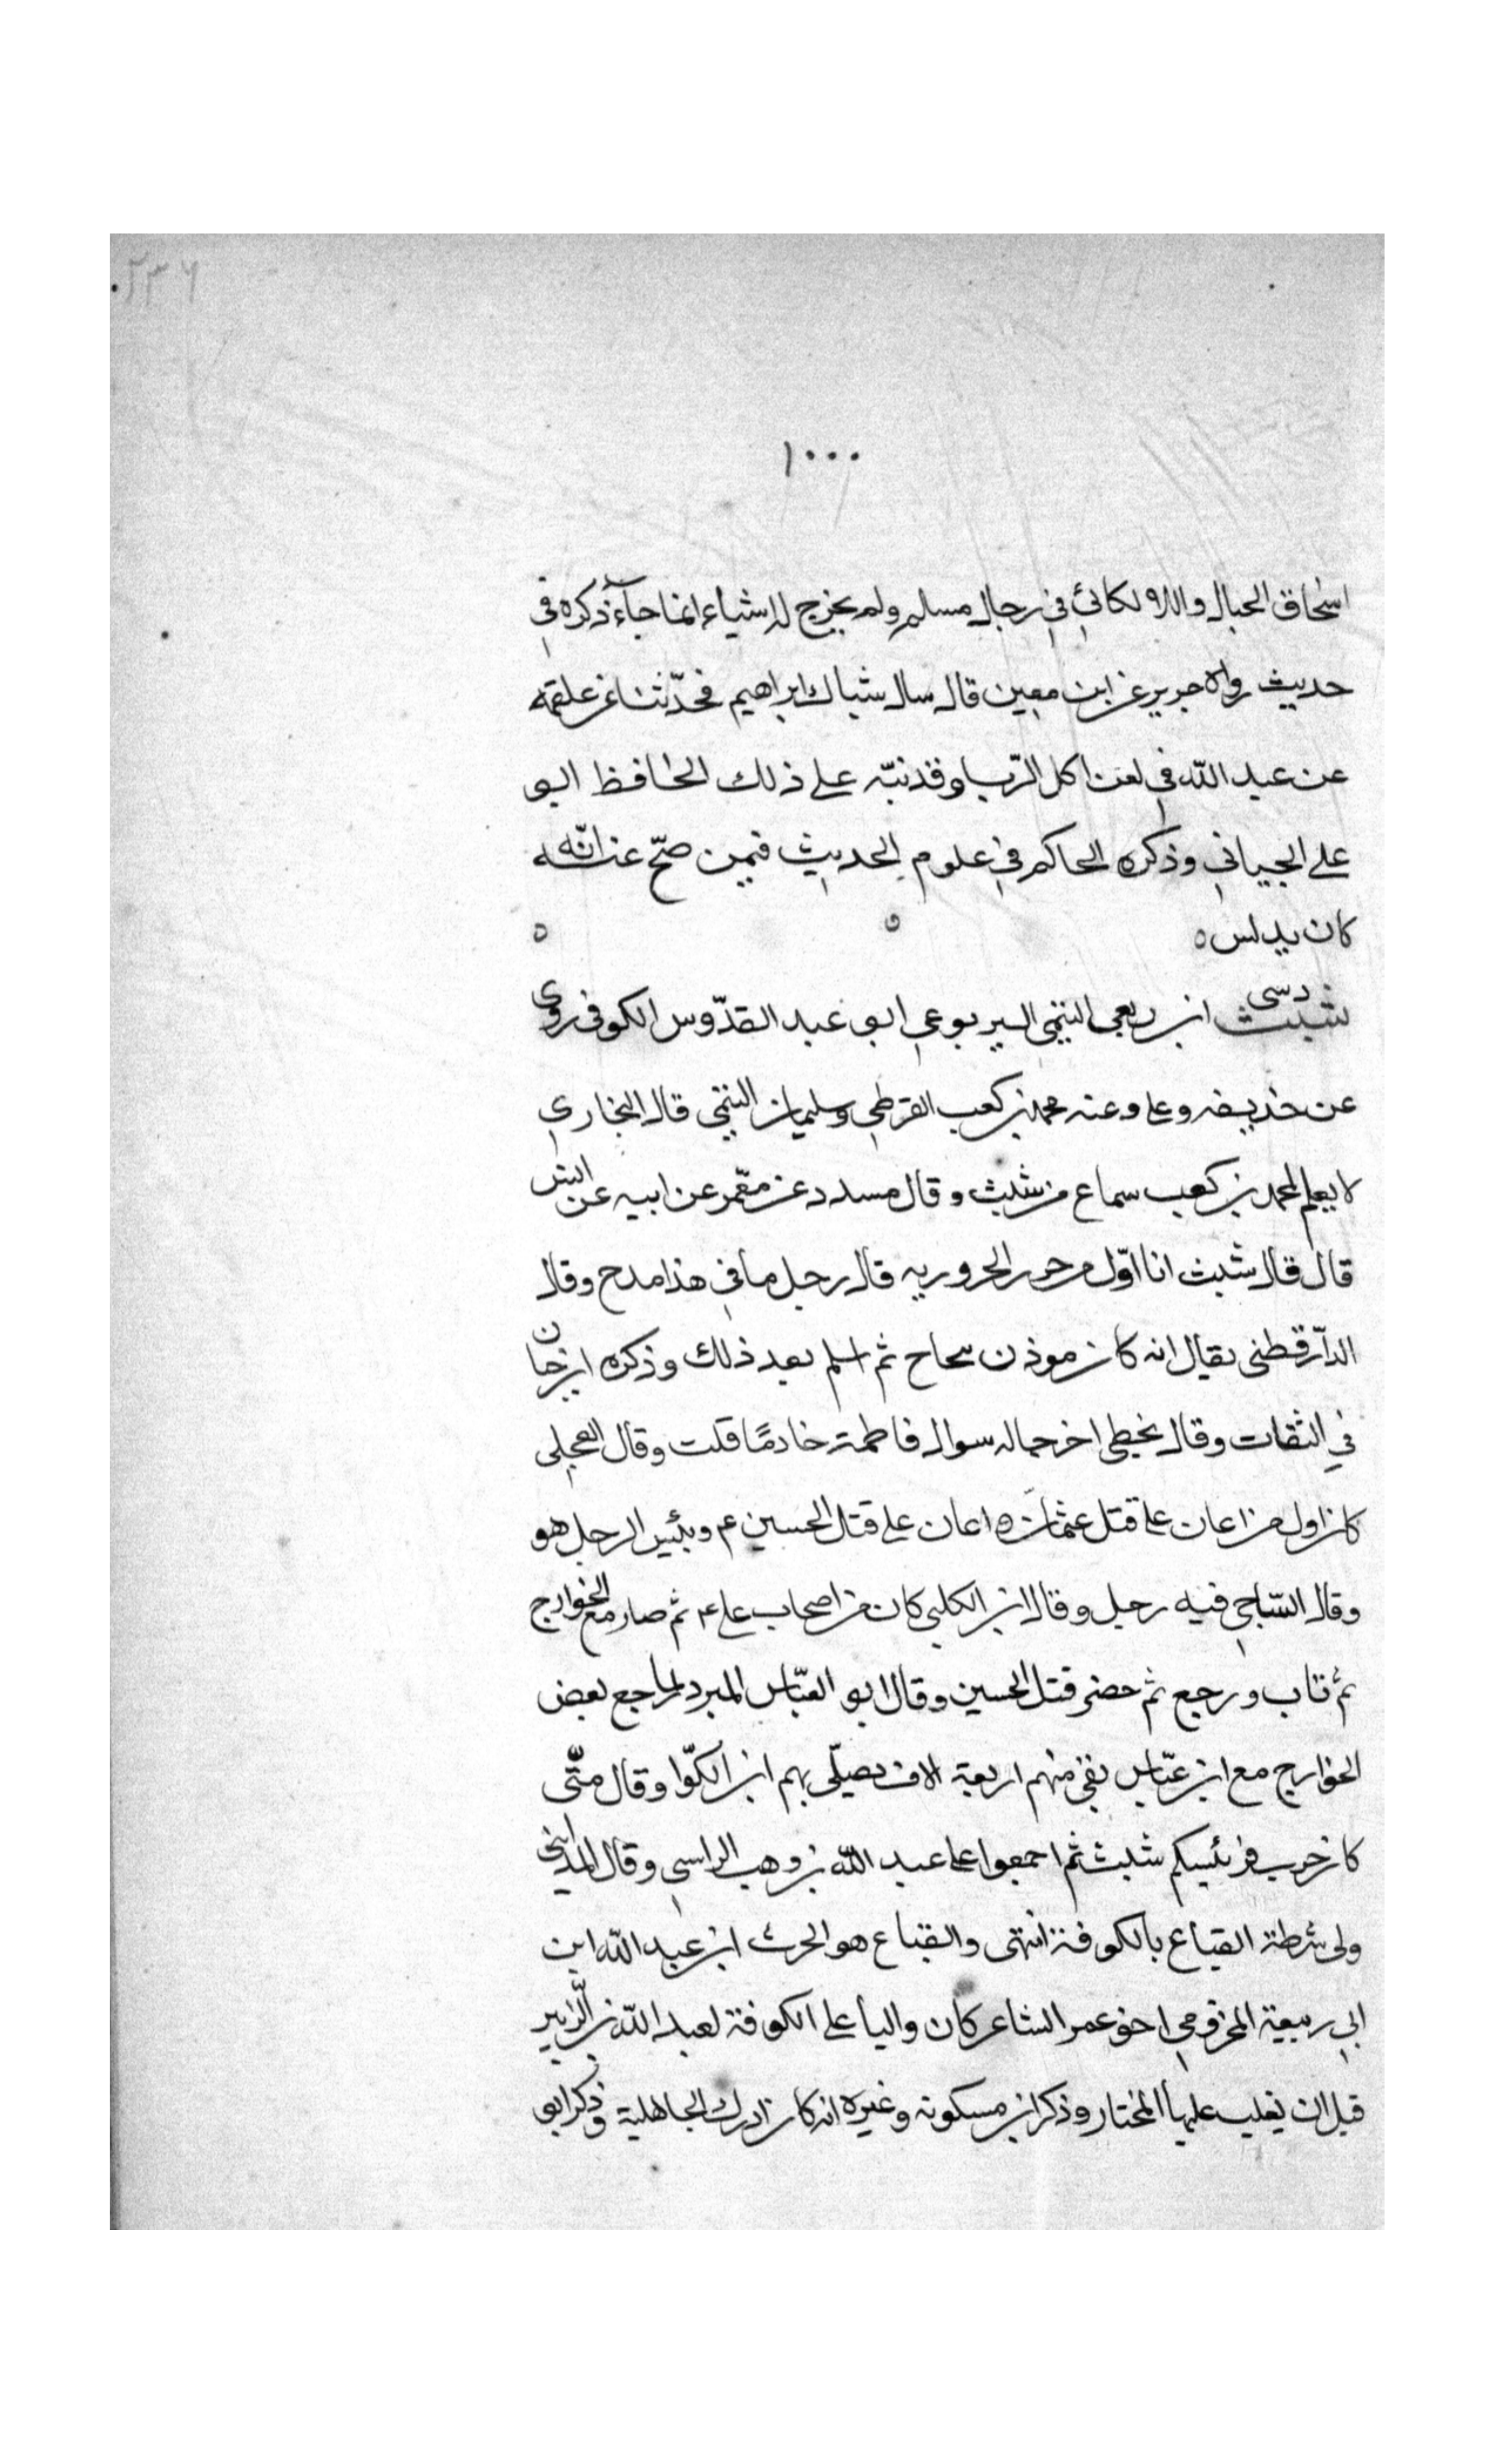 ٢٣٦
١٠٠٠
اسحاق الحبال واللالكائي في رجال مسلم ولم يخرج له شياء انما جاء ذكره في
حديث رواه جرير عن ابن معين قال سال شباك ابراهيم فحدّثنا عن علقمه
عن عبد الله في لعن اكل الرّبا وقد نبّه على ذلك الحافظ ابو
على الجياني وذكره الحاكم في علوم الحديث فيمن صحّ عنه انّه
كان يدلس ه ه ه
دسى
شبث ابن ربعي التيمي اليربوعي ابو عبد القدّوس الكوفي روى
عن حذيفه وعلى وعنه محمد بن كعب القرظي وسليمان التيمي قال البخاري
لا يعلم لمحمد بن كعب سماع من شبث وقال مسدد عن معمر عن ابيه عن انس
قال قال شبث انا اوّل من حرر الحروريه قال رجل ما في هذا مدح وقال
الدّارقطنى يقال انه كان موذن سجاح ثم اسلم بعد ذلك وذكره ابن حبان
في الثقات وقال يخطى اخرجا له سوال فاطمة خادمًا قلت وقال العجلى
كان اول من اعان على قتل عثمان واعان على قتل الحسين ع وبئيس الرجل هو
وقال السّاجي فيه رجل وقال ابن الكلبي كان من اصحاب على ع ثم صار مع الخوارج
ثم تاب ورجع ثم حضر قتل الحسين وقال ابو العبّاس المبرد لما رجع بعض
الخوارج مع ابن عبّاس بقي منهم اربعة الاف يصلّى بهم ابن الكوّا وقال متّى
كان حرب فرئيسكم شبث ثم اجمعوا على عبد الله بن وهب الراسبي وقال المدايني
ولى شرطة القباع بالكوفة انتهى والقباع هو الحرث ابن عبد الله ابن
ابي ربيعة المخزومي اخو عمر الشاعر كان واليا على الكوفة لعبد الله بن الزبير
قبل ان يغلب عليها المختار وذكر ابن مسكويه وغيره انه كان ادرك الجاهلية وذكر ابو